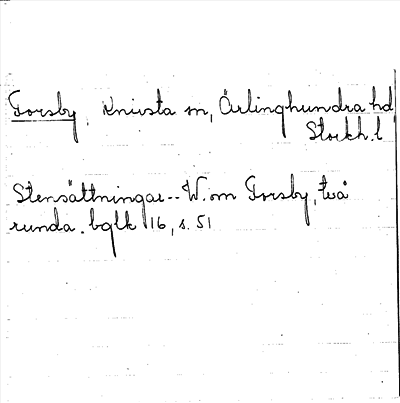 Forsby, Knivsta sn, Ärlinghundra hd
Stockh. l
Stensättningar -- W. om Forsby, två
runda. bglk 16, s. 51